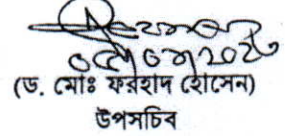 (ড. মোঃ ফরহাদ হোসেন)
উপসচিব